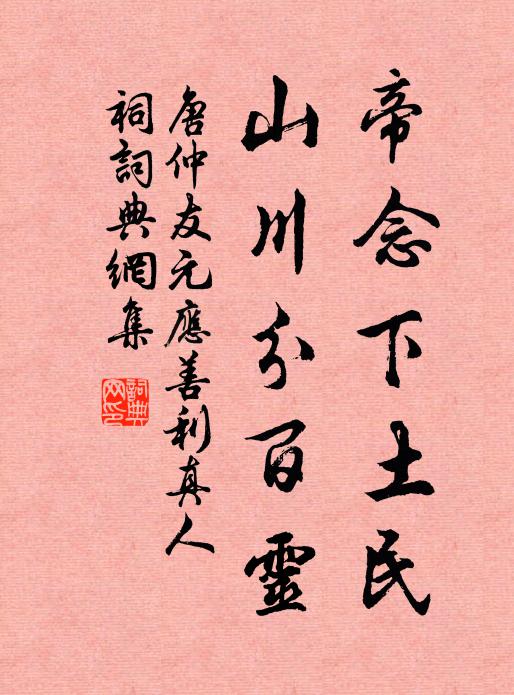 帝念下土民
山川分百靈
唐仲友元應善利真人
祠詞典網集
詞典網印